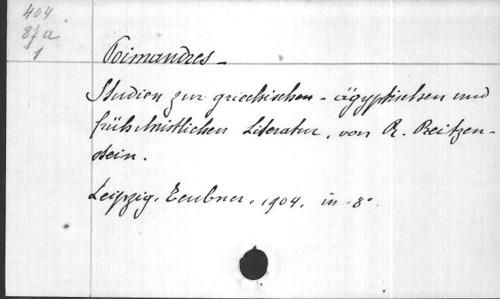 404
87a
1
Poimandres -
Studien zur griechischen - ägyptischen und
frühchristlichen Literatur, von R. Reitzen-
stein.
Leipzig, Teubner, 1904, in - 8°